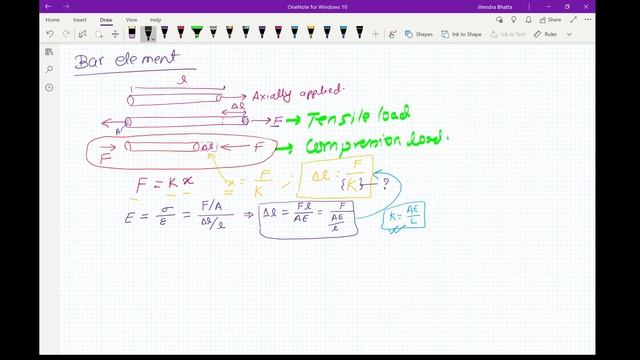 OneNote for Windows 10
Jitendra Bhatta
Home Insert Draw View Help
Shapes Ink to Shape Ink to Text Ruler
Bar element
l
Axially applied.
Δl
A F → Tensile load
F Δl F → Compression load.
F = K x x = F/K ; Δl = F/K {} — ?
E = σ/ε = F/A / Δl/l ⇒ Δl = Fl/AE = F / AE/l K = AE/L